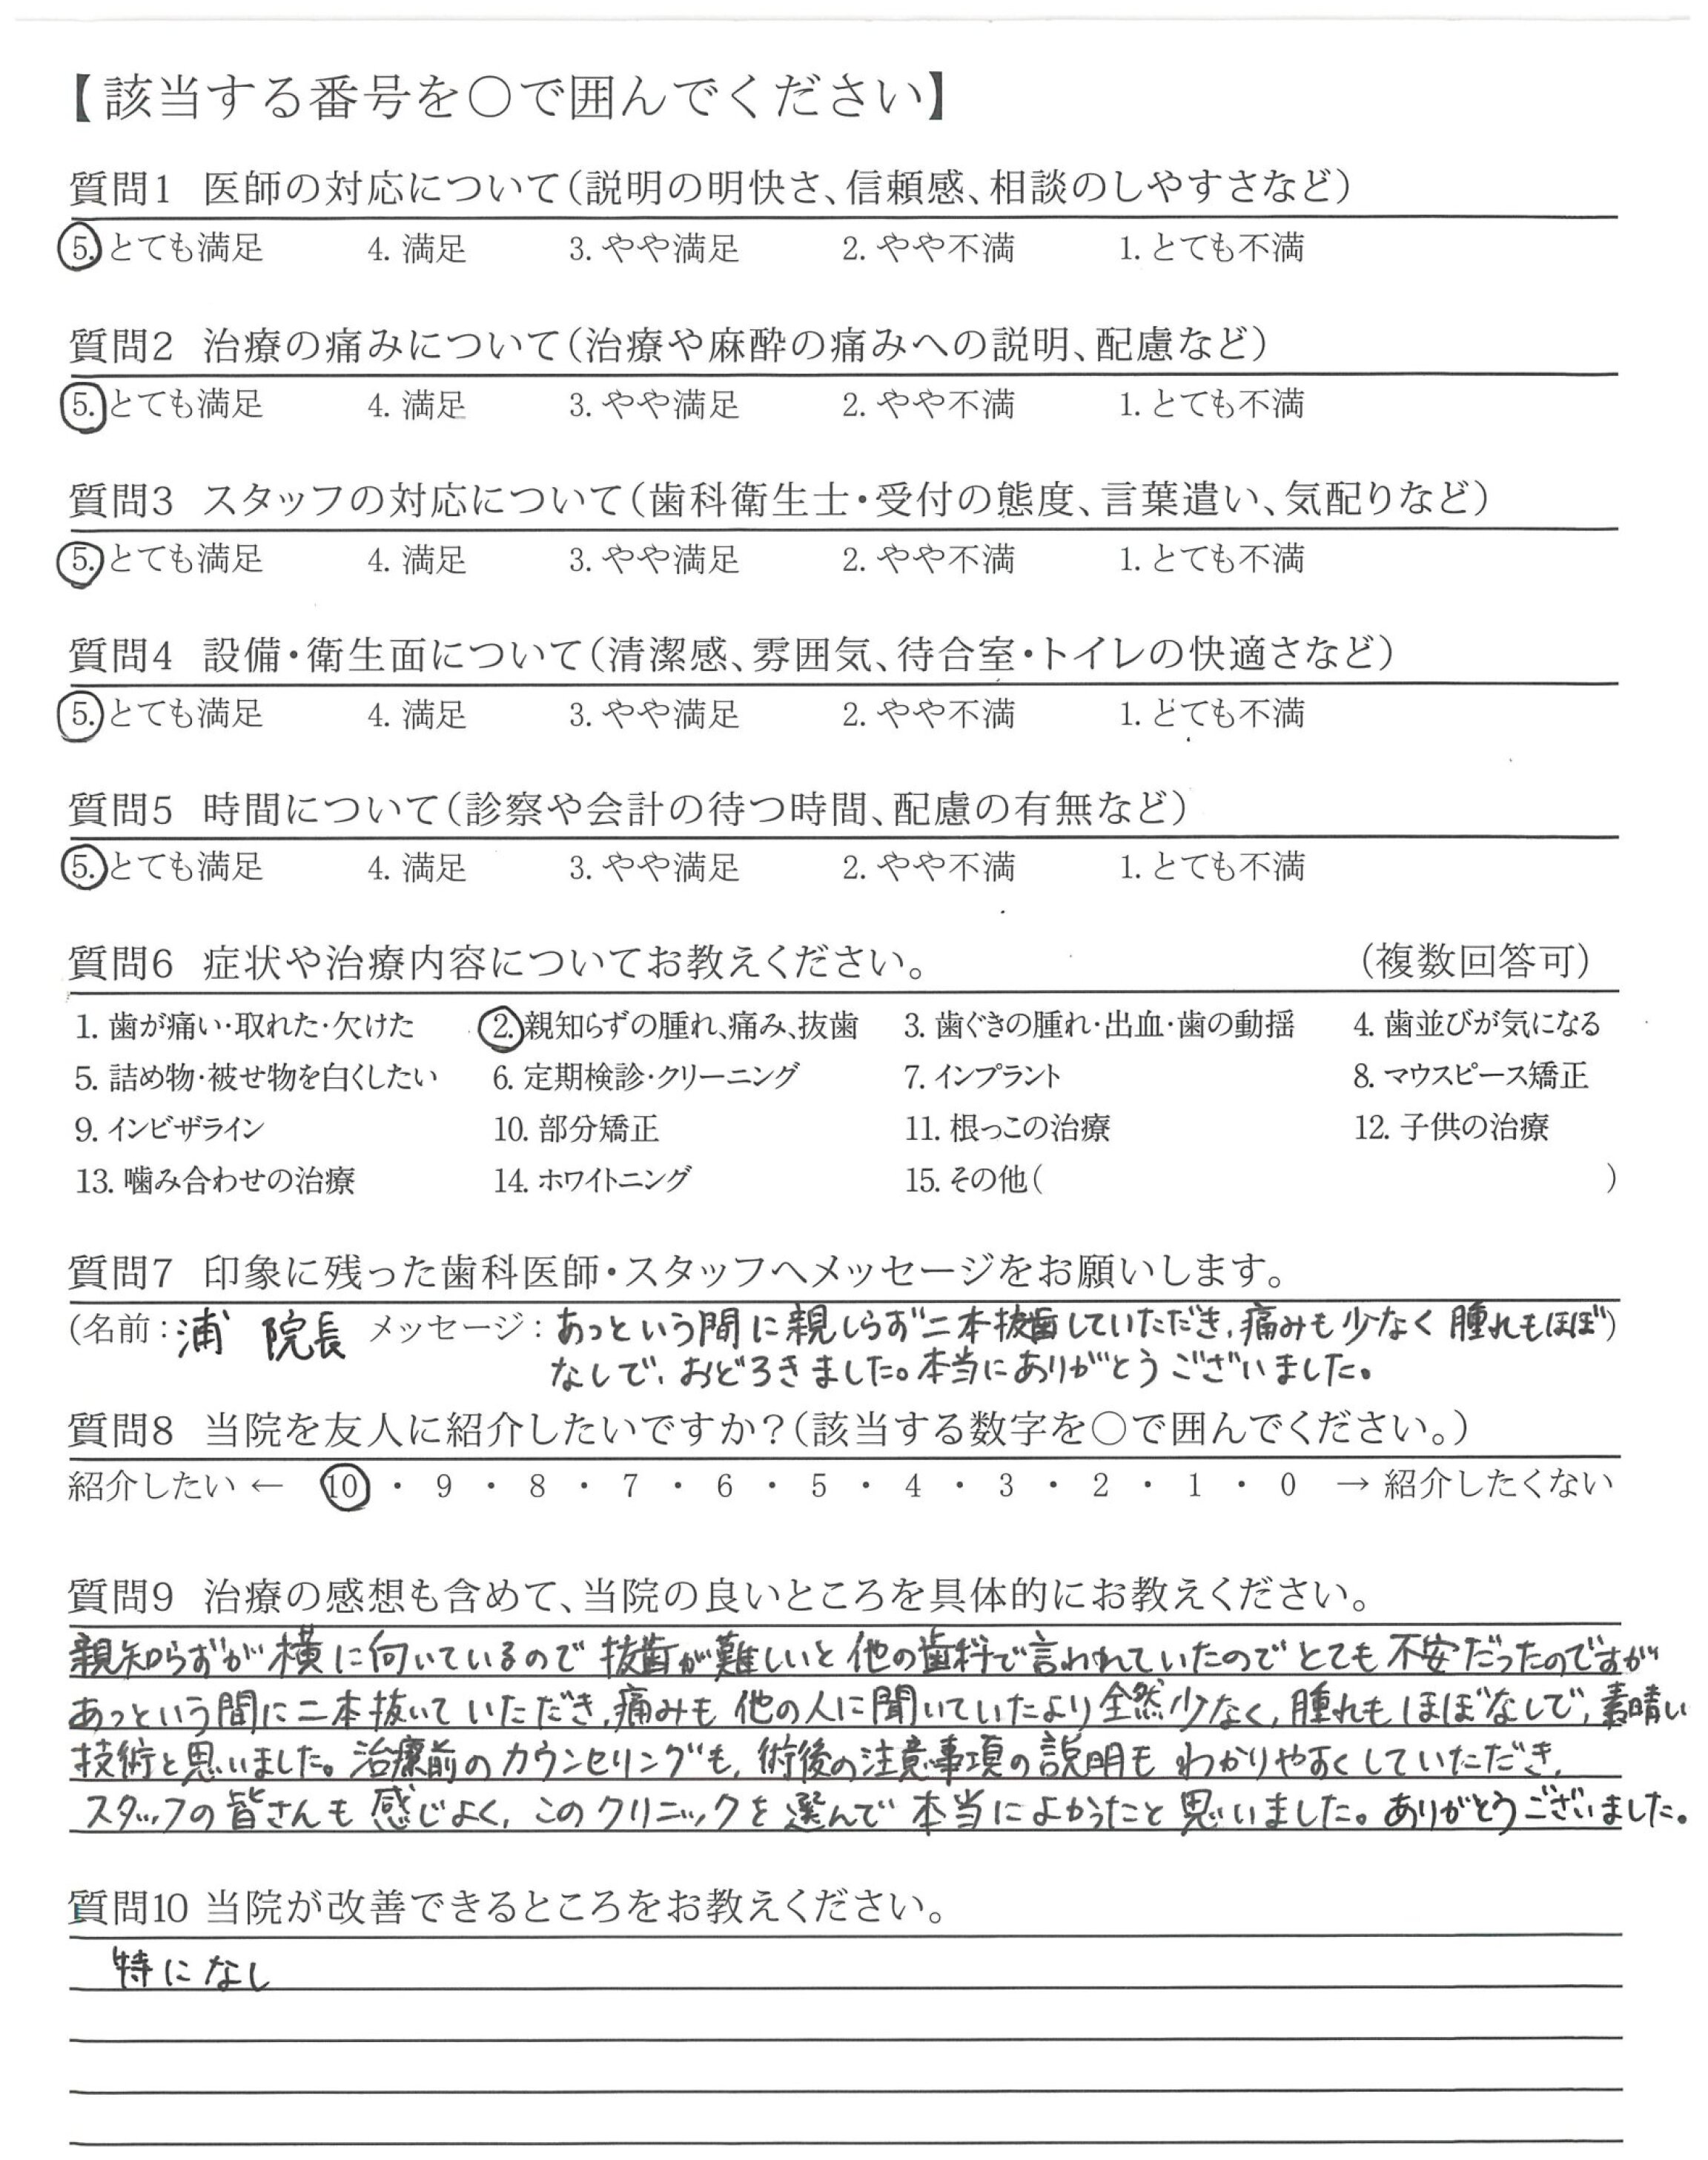 【該当する番号を○で囲んでください】
質問1 医師の対応について(説明の明快さ、信頼感、相談のしやすさなど)
5. とても満足 4. 満足 3. やや満足 2. やや不満 1. とても不満
質問2 治療の痛みについて(治療や麻酔の痛みへの説明、配慮など)
5. とても満足 4. 満足 3. やや満足 2. やや不満 1. とても不満
質問3 スタッフの対応について(歯科衛生士・受付の態度、言葉遣い、気配りなど)
5. とても満足 4. 満足 3. やや満足 2. やや不満 1. とても不満
質問4 設備・衛生面について(清潔感、雰囲気、待合室・トイレの快適さなど)
5. とても満足 4. 満足 3. やや満足 2. やや不満 1. とても不満
質問5 時間について(診察や会計の待つ時間、配慮の有無など)
5. とても満足 4. 満足 3. やや満足 2. やや不満 1. とても不満
質問6 症状や治療内容についてお教えください。 (複数回答可)
1. 歯が痛い・取れた・欠けた 2. 親知らずの腫れ、痛み、抜歯 3. 歯ぐきの腫れ・出血・歯の動揺 4. 歯並びが気になる
5. 詰め物・被せ物を白くしたい 6. 定期検診・クリーニング 7. インプラント 8. マウスピース矯正
9. インビザライン 10. 部分矯正 11. 根っこの治療 12. 子供の治療
13. 噛み合わせの治療 14. ホワイトニング 15. その他( )
質問7 印象に残った歯科医師・スタッフへメッセージをお願いします。
(名前:浦 院長 メッセージ:あっという間に親しらず二本抜歯していただき、痛みも少なく腫れもほぼ)
なしで、おどろきました。本当にありがとうございました。
質問8 当院を友人に紹介したいですか?(該当する数字を○で囲んでください。)
紹介したい ← 10 ・ 9 ・ 8 ・ 7 ・ 6 ・ 5 ・ 4 ・ 3 ・ 2 ・ 1 ・ 0 → 紹介したくない
質問9 治療の感想も含めて、当院の良いところを具体的にお教えください。
親知らずが横に向いているので抜歯が難しいと他の歯科で言われていたのでとても不安だったのですが
あっという間に二本抜いていただき、痛みも他の人に聞いていたより全然少なく、腫れもほぼなしで、素晴しい
技術と思いました。治療前のカウンセリングも、術後の注意事項の説明もわかりやすくしていただき、
スタッフの皆さんも感じよく、このクリニックを選んで本当によかったと思いました。ありがとうございました。
質問10 当院が改善できるところをお教えください。
特になし